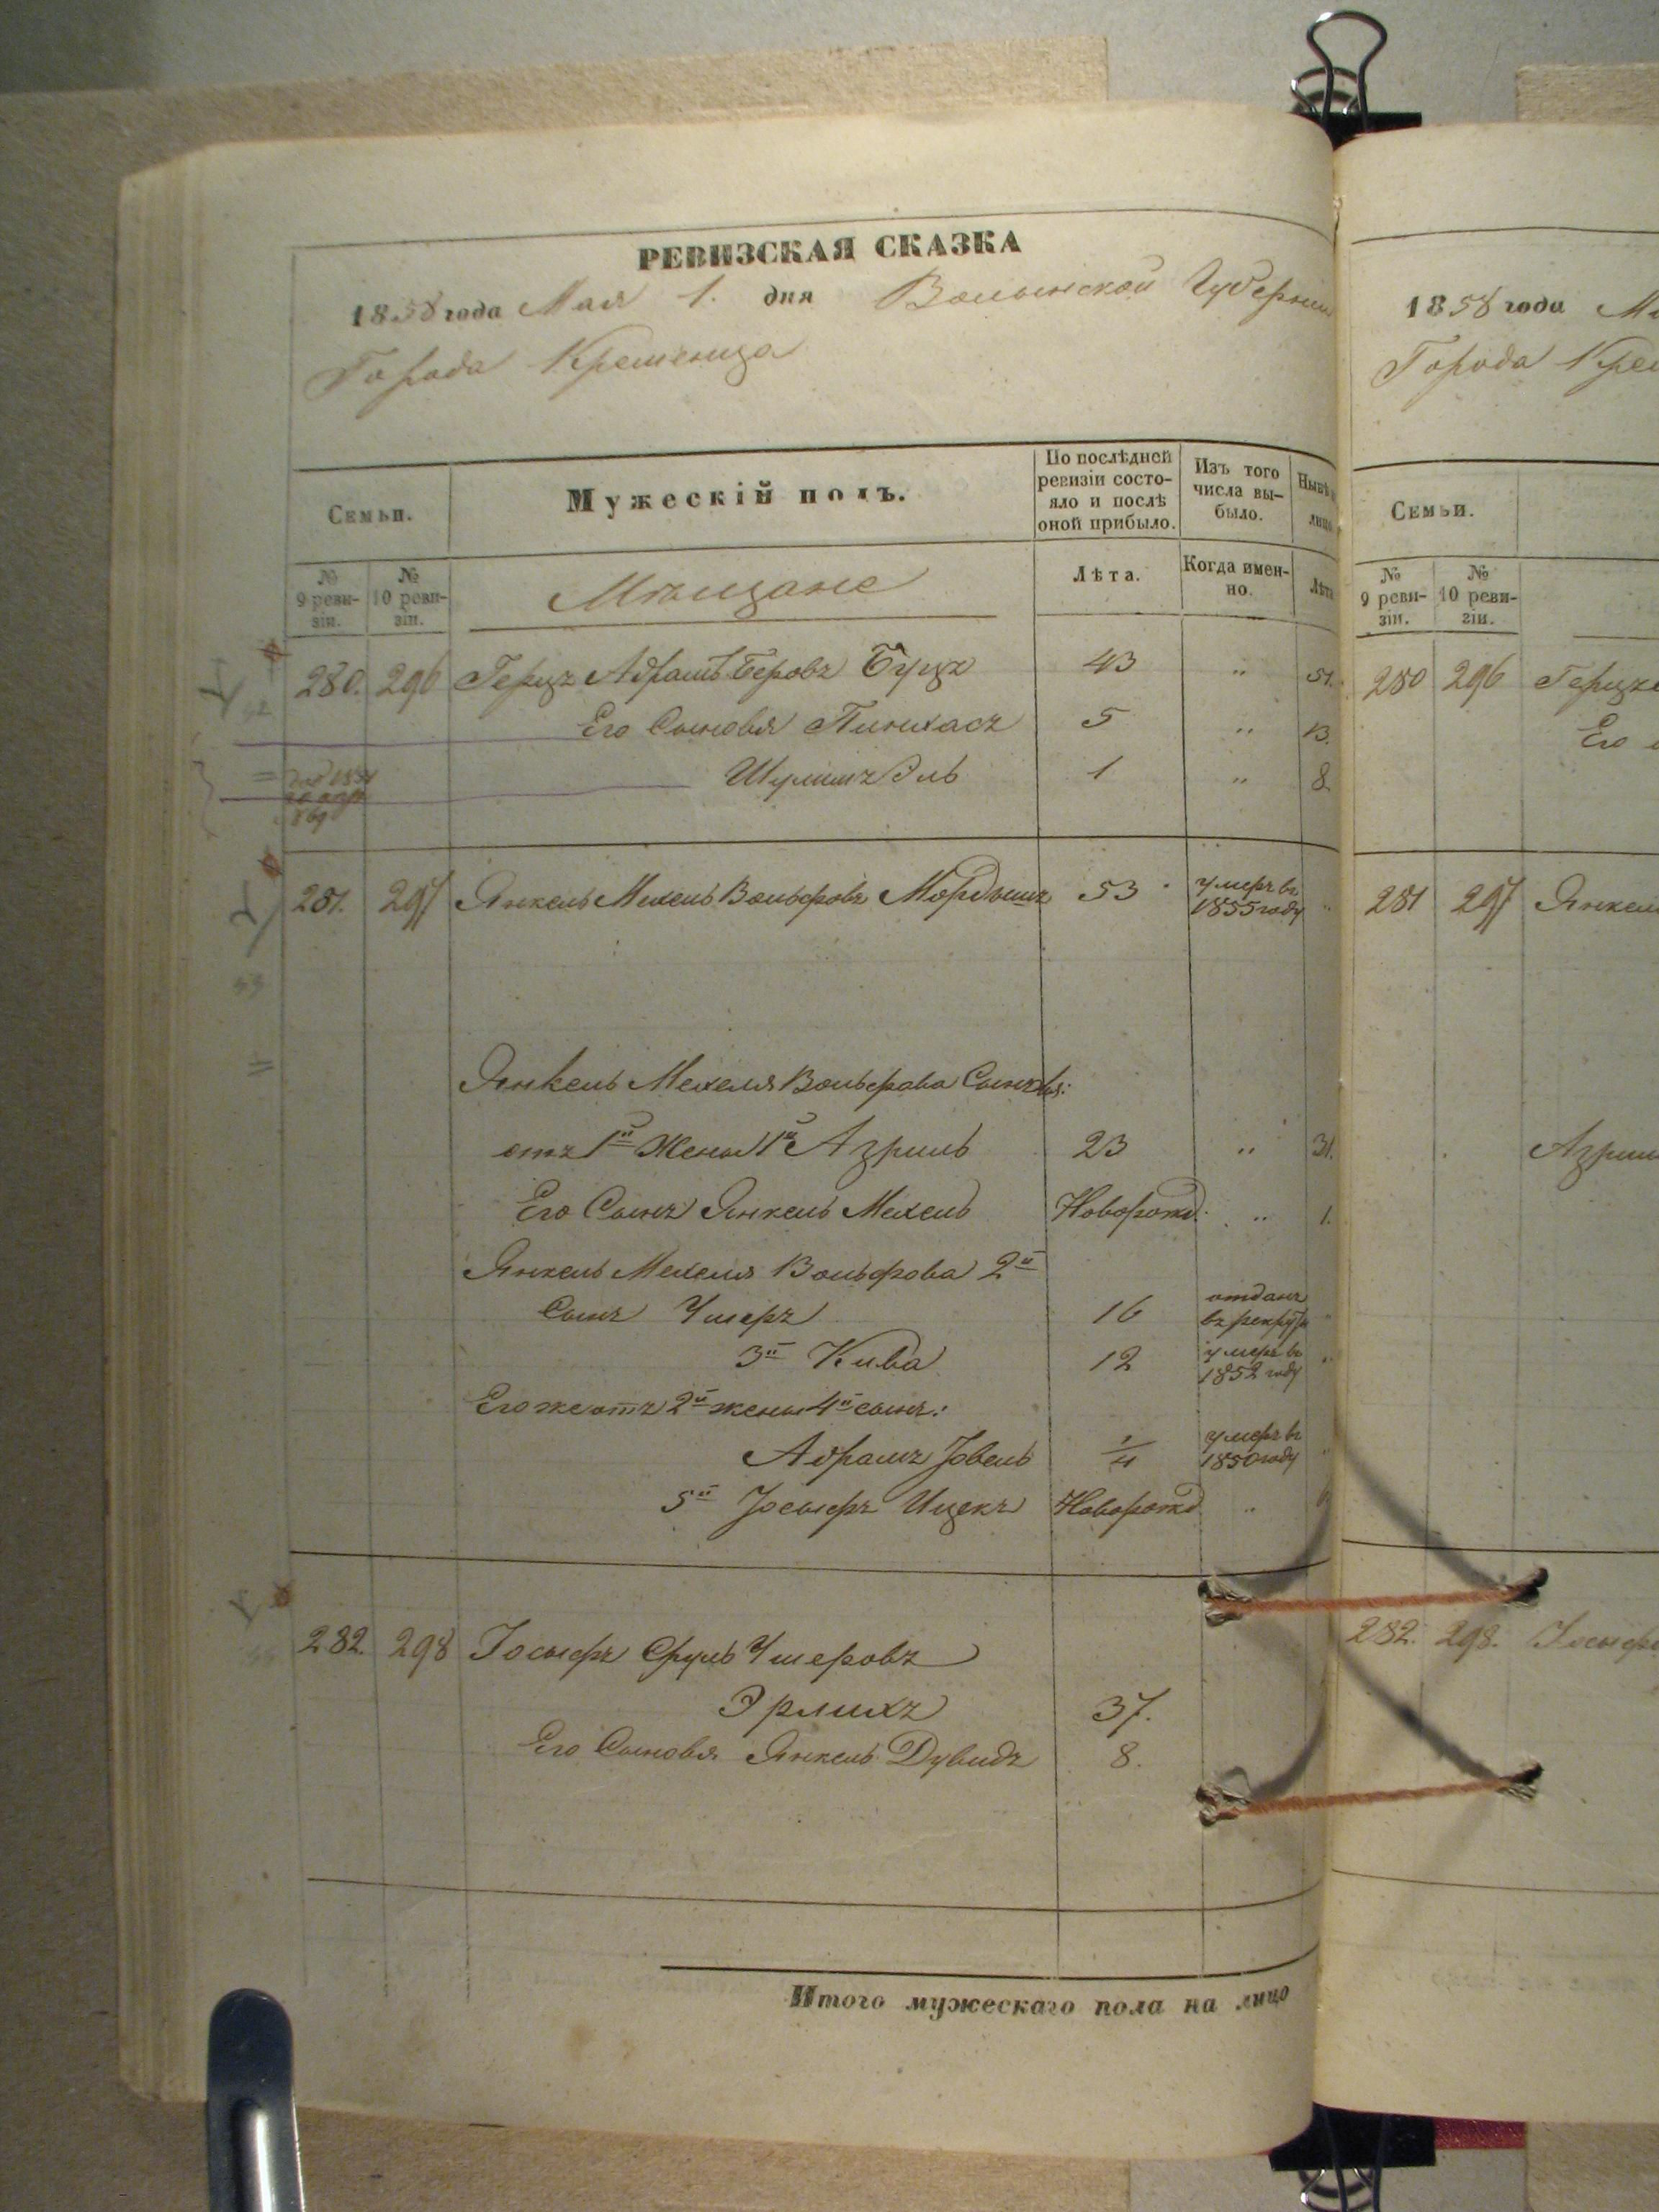 РЕВИЗСКАЯ СКАЗКА
1858 года Мая 1. дня Волынской Губернии
Города Кременца
Семьи.
Мужескій полъ.
По послѣдней ревизіи состо-
яло и послѣ
оной прибыло.
Изъ того
числа вы-
было.
№ 9 реви-
зіи.
№ 10 реви-
зіи.
Мѣщане
Лѣта.
Когда имен-
но.
Лѣта
280. 296 Герцъ Абрамъ Беровъ Буцъ 43 " 51.
Его Сыновья Пинхасъ 5 " 13.
Шулимъ Эль 1 " 8
281. 297 Янкель Мехель Вольфовъ 53 умеръ въ
1855 году "
Янкель Мехеля Вольфова Сыновья:
отъ 1й Жены 1й Азриль 23 " 31.
Его Сынъ Янкель Мехель Новорожд. " 1.
Янкель Мехеля Вольфова 2й
Сынъ Ушеръ 16 отданъ
въ рекруты "
3й Кива 12 умеръ въ
1852 году "
Его же отъ 2й жены 4й сынъ:
Абрамъ Іовель 1/4 умеръ въ
1850 году "
5й Іосыфъ Ицекъ Новорожд "
282. 298 Іосыфъ Сруль Ушеровъ
Эрлихъ 37.
Его Сыновья Янкель Дувидъ 8.
Итого мужескаго пола на лицо
1858 года
Города
Семьи.
№ 9 реви-
зіи.
№ 10 реви-
зіи.
280 296
Его
281 297 Янкель
282. 298.